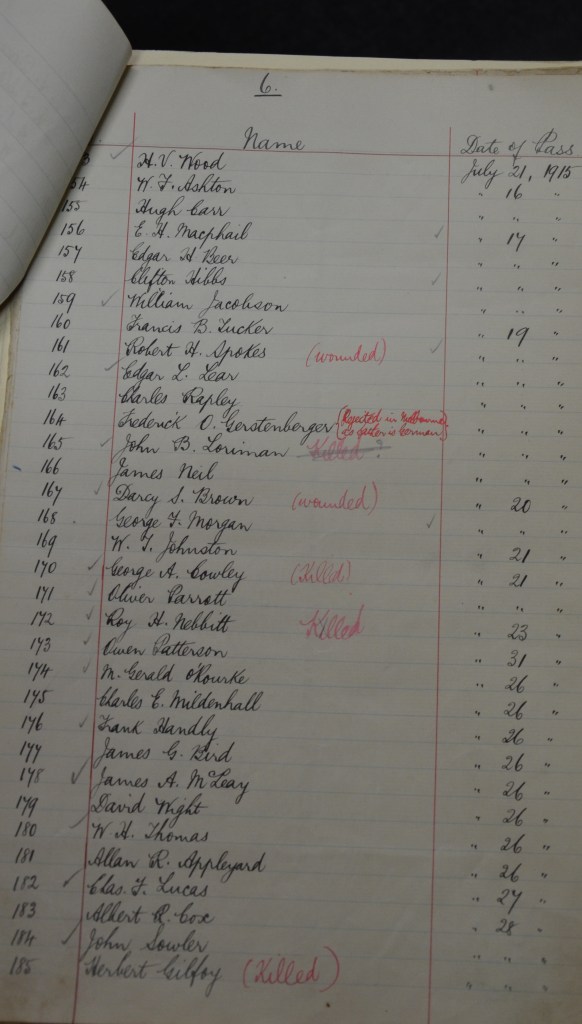 6.
Name Date of Pass
3 ✓ H. V. Wood July 21, 1915
54 W. F. Ashton " 16 "
155 Hugh Carr " " "
156 E. H. Macphail ✓ " 17 "
157 Edgar H Beer " " "
158 Clifton Hibbs ✓ " " "
159 ✓ William Jacobson " " "
160 Francis B. Tucker " 19 "
161 Robert H. Spokes (wounded) ✓ " " "
162 ✓ Edgar L. Lear " " "
163 Charles Rapley " " "
164 Frederick O. Gerstenberger (Rejected in Melbourne as father is German) " " "
165 ✓ John B. Loriman Killed " " "
166 James Neil " " "
167 ✓ Darcy S. Brown (wounded) " 20 "
168 George F. Morgan ✓ " " "
169 W. J. Johnston " 21 "
170 ✓ George A. Cowley (Killed) " 21 "
171 ✓ Oliver Parrott " " "
172 ✓ Roy H. Nebbitt Killed " 23 "
173 ✓ Owen Patterson " 31 "
174 ✓ M. Gerald O'Rourke " 26 "
175 Charles E. Mildenhall " 26 "
176 ✓ Frank Handly " 26 "
177 James G. Bird " 26 "
178 ✓ James A. McLeay " 26 "
179 David Wight " 26 "
180 ✓ W. H. Thomas " 26 "
181 Allan R. Appleyard " 26 "
182 ✓ Chas. F. Lucas " 27 "
183 Albert R. Cox " 28 "
184 ✓ John Sowler " " "
185 Herbert Gilfoy (Killed) " " "